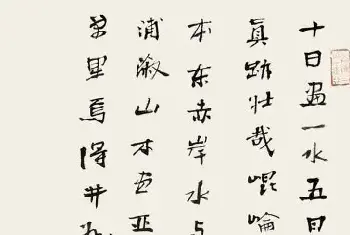 十日畫一水五日
真跡壮哉崐崘
本东赤岸水与
浦溆山木尽亚
萬里焉得并